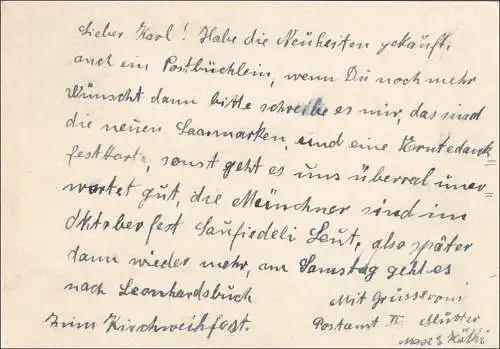 Lieber Karl! Habe die Neuheiten gekauft,
auch ein Postbüchlein, wenn Du noch mehr
Wünscht dann bitte schreibe es mir, das sind
die neuen Saarmarken, und eine Erntedank-
festkarte, sonst geht es uns überral uner-
wartet gut, die Münchner sind im
Oktoberfest Saufiedeli Leut, also später
dann wieder mehr, am Samstag geht es
nach Leonhardsbuch
zum Kirchweihfest.
Mit Grüsse
Postamt II Mutter